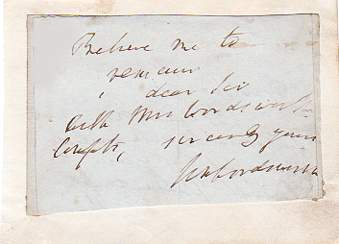 Believe me to
remain
dear Sir
with Mrs Wordsworth's
Compts, sincerely yours
Wm Wordsworth